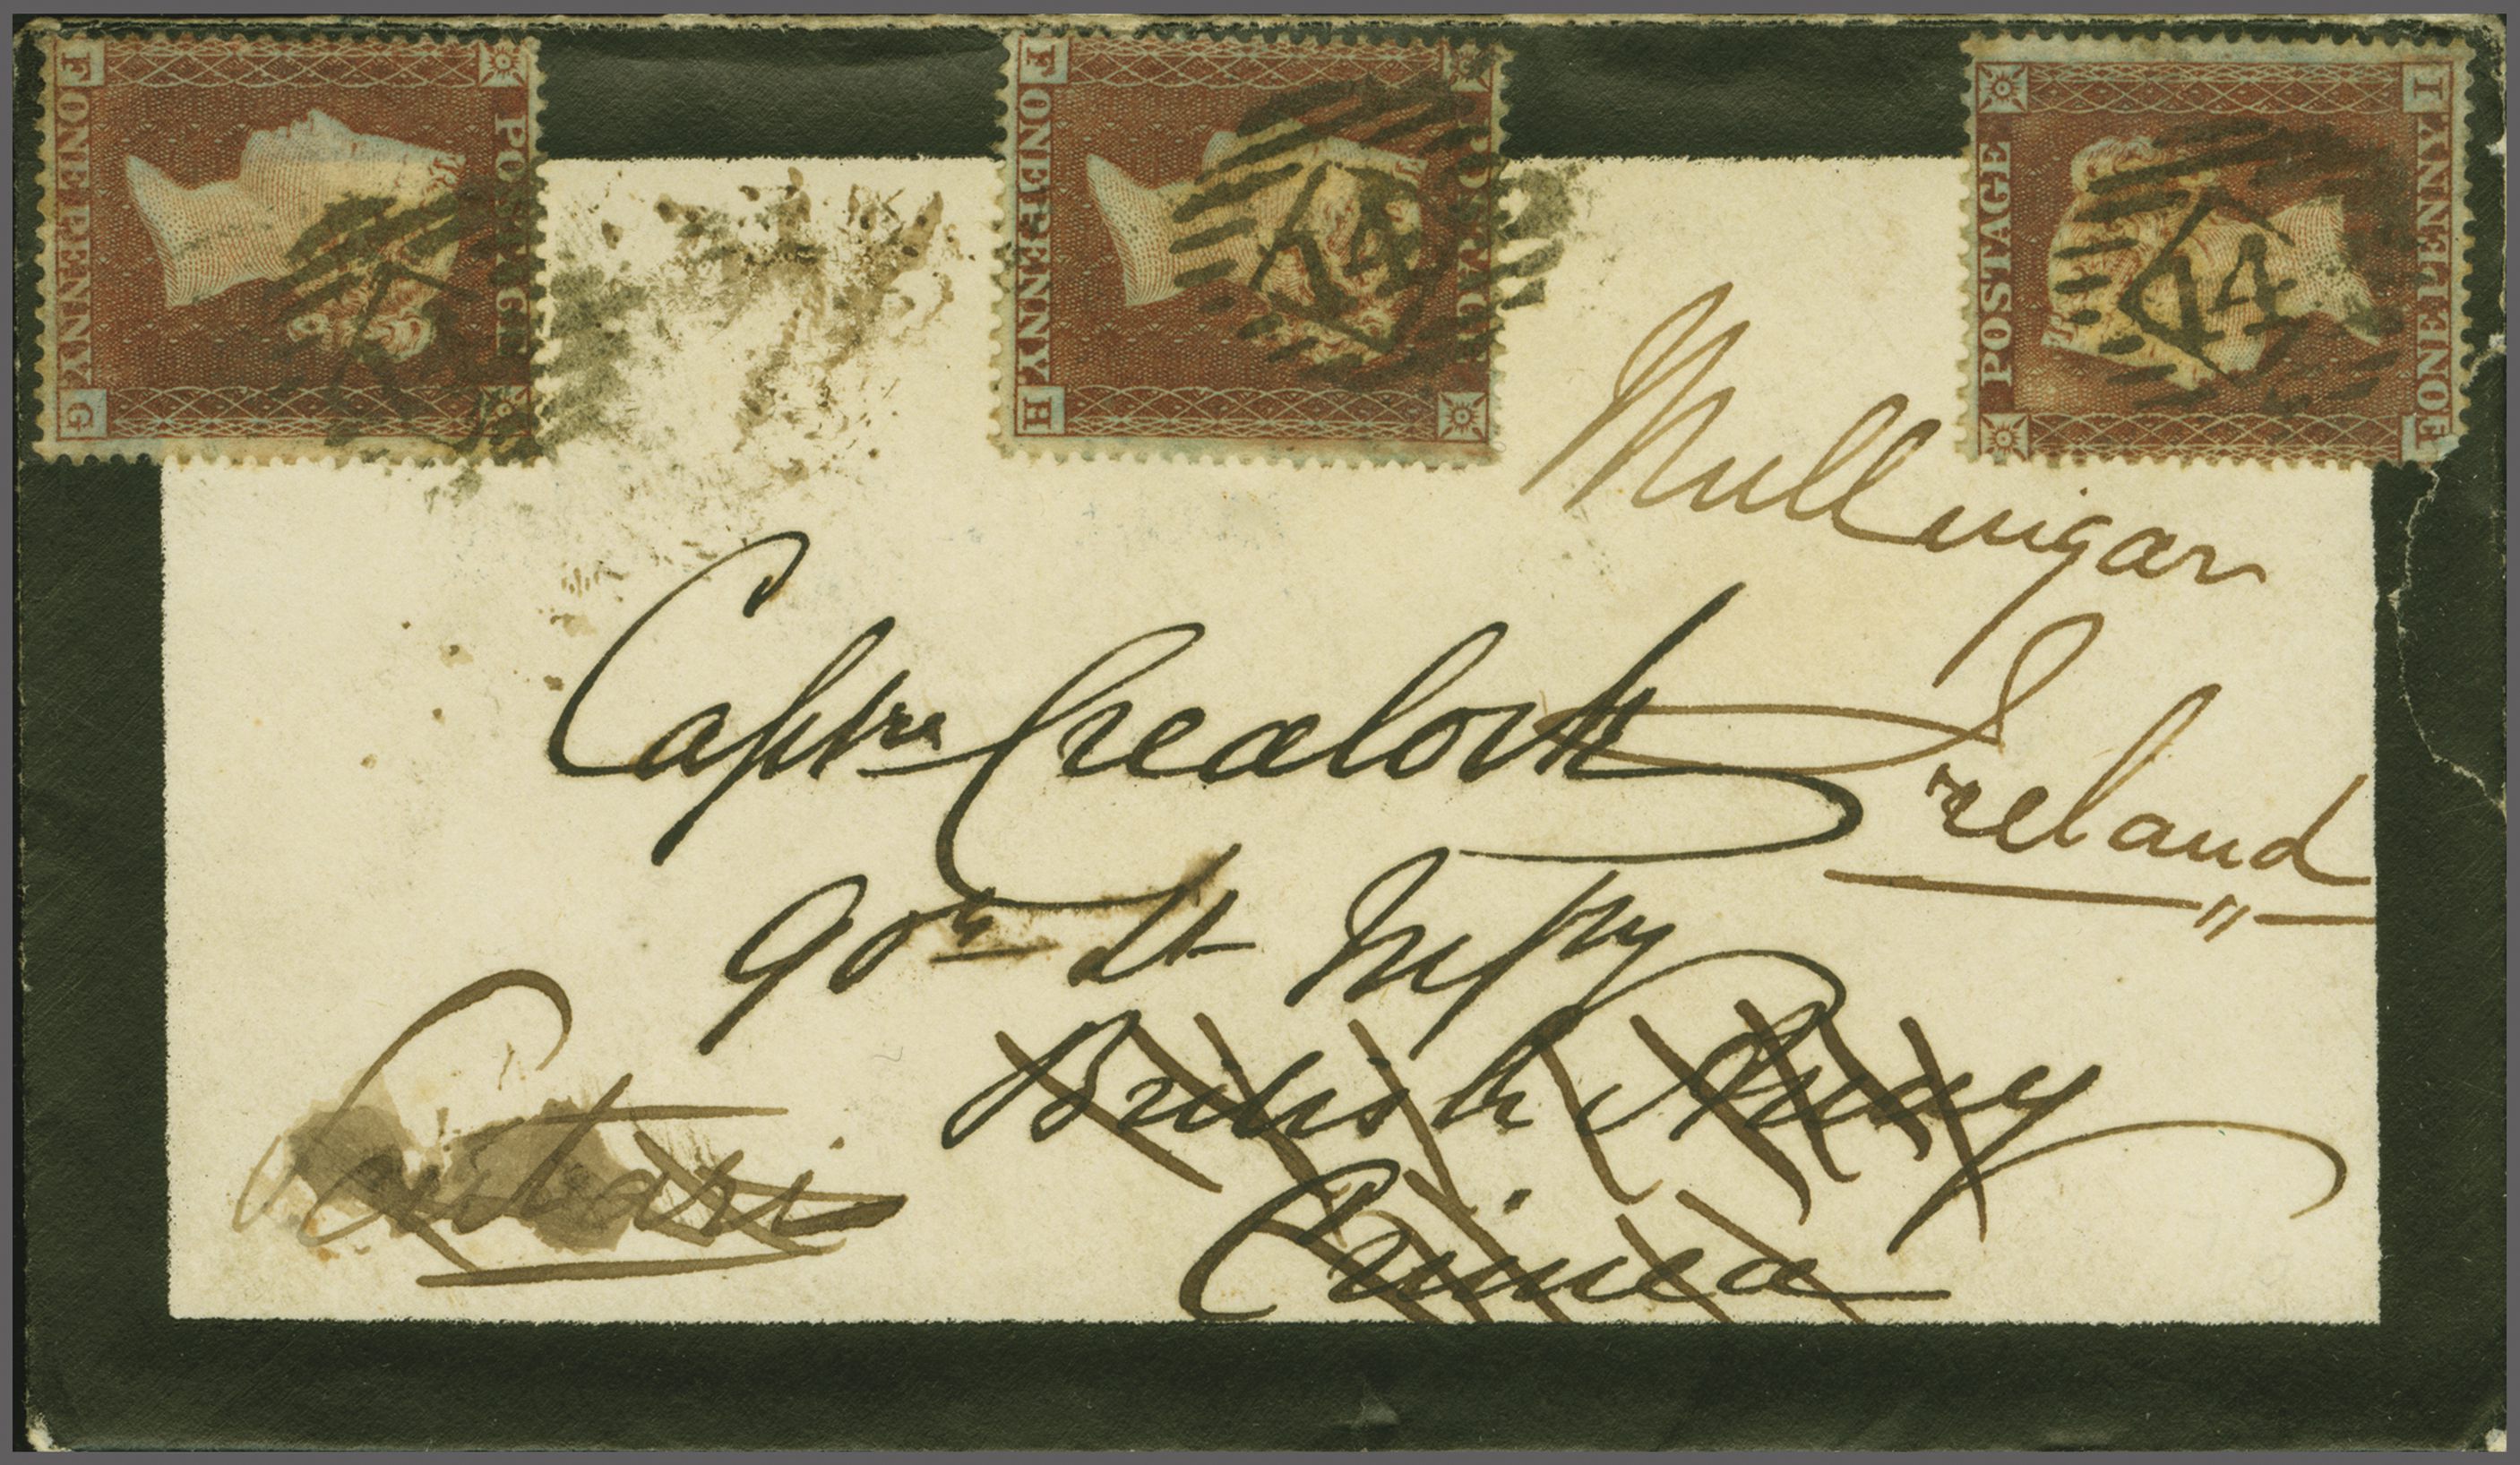 F ONE PENNY G
POSTAGE
F ONE PENNY H
POSTAGE
14
POSTAGE
F ONE PENNY I
14
Mullingar
Ireland
Captn Crealock
90th Lt Infry
British Army
Crimea
Scutari